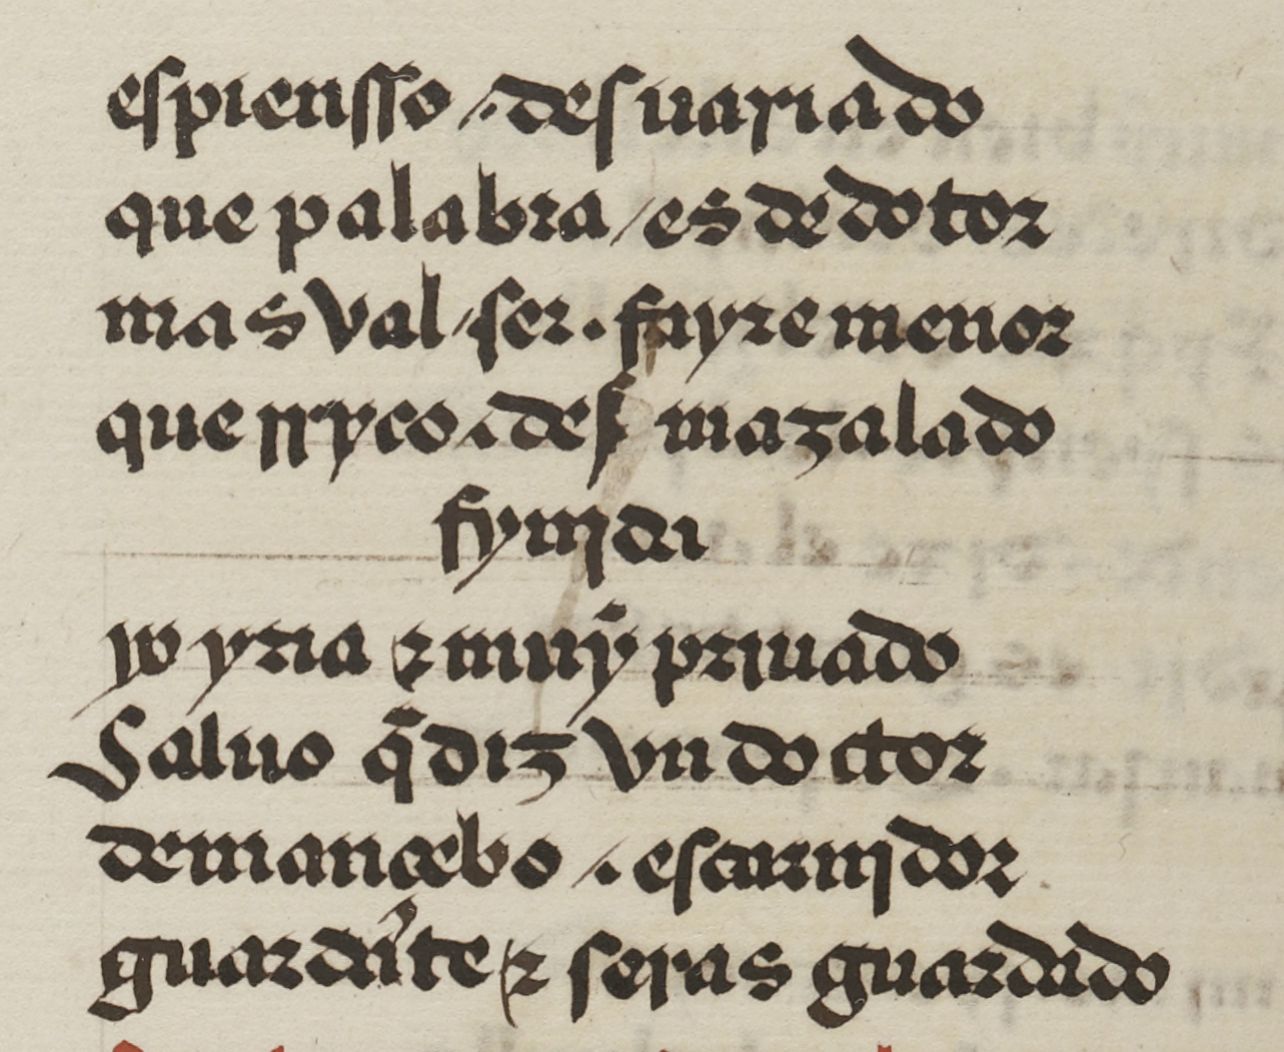 espiensso / desuariado
que palabra / es de dotor
mas Val / ser . frayre menor
que rryco . des mazalado
fynida
yo yria ⁊ muỹ priuado
Saluo q̃ diz Vn doctor
demancebo / . escarnidor
guardate ⁊ seras guardado